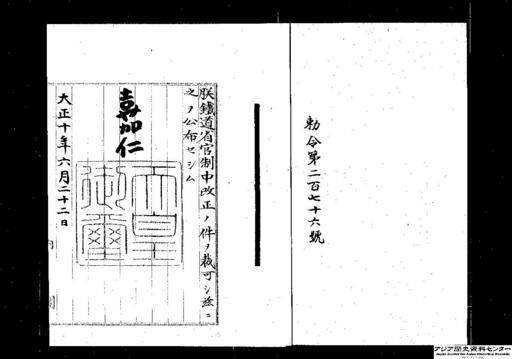 勅令第二百七十六號
朕鐵道省官制中改正ノ件ヲ裁可シ茲ニ
之ヲ公布セシム
嘉仁
天皇御璽
大正十年六月二十二日
内閣
アジア歴史資料センター
Japan Center for Asian Historical Records